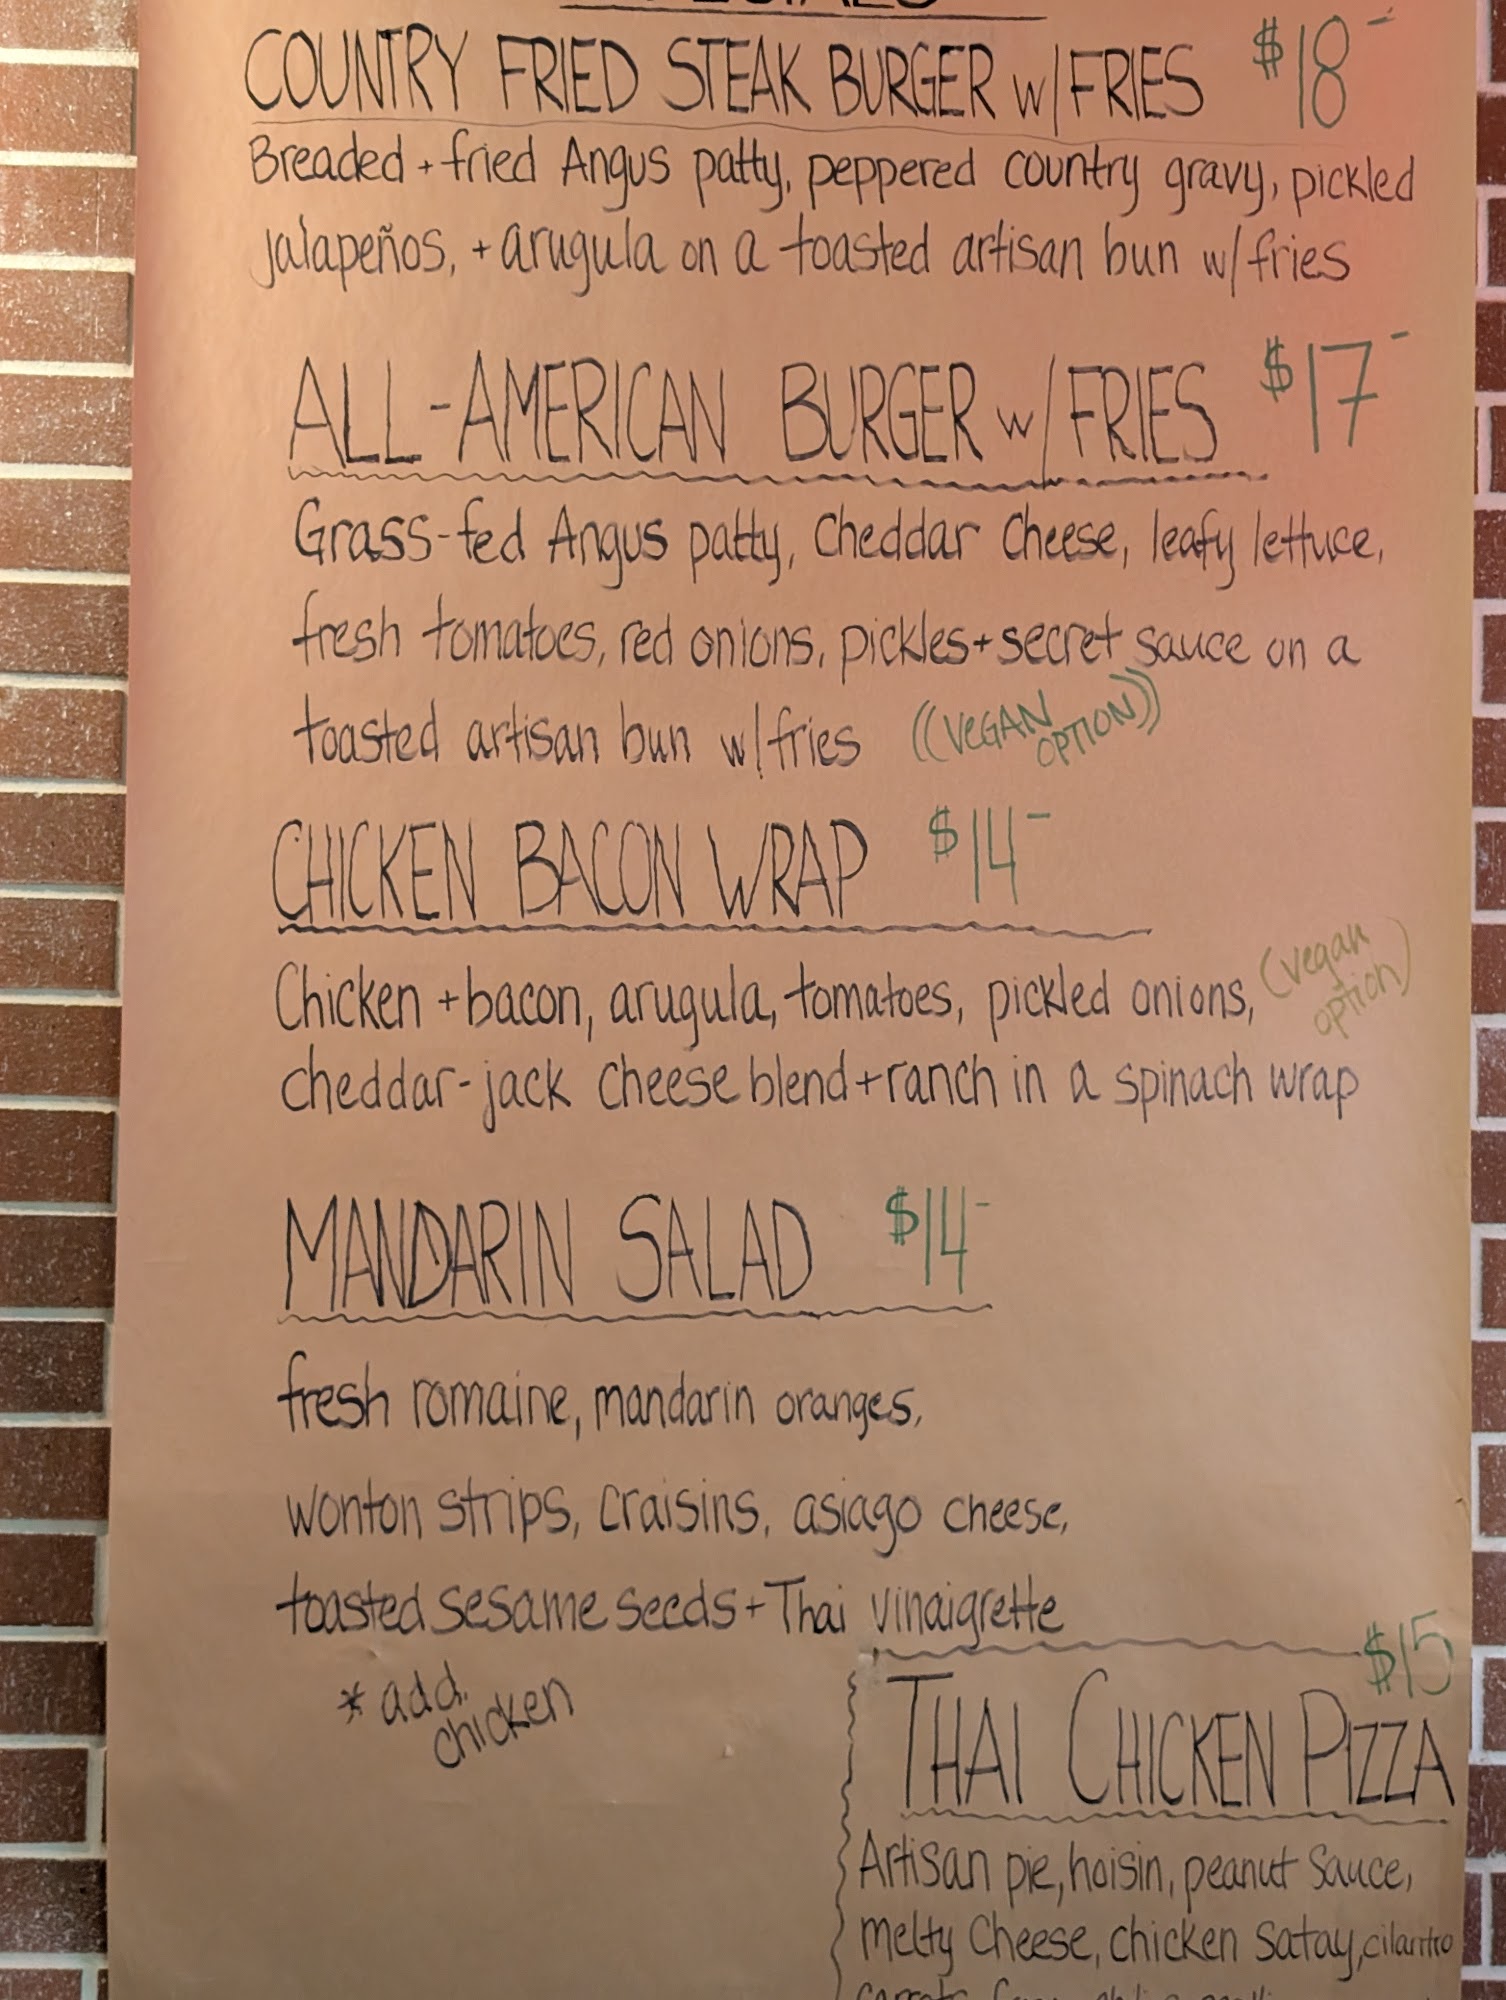 COUNTRY FRIED STEAK BURGER w/FRIES $18-
Breaded + fried Angus patty, peppered country gravy, pickled
jalapeños, + arugula on a toasted artisan bun w/fries
ALL-AMERICAN BURGER w/FRIES $17-
Grass-fed Angus patty, Cheddar Cheese, leafy lettuce,
fresh tomatoes, red onions, pickles + secret sauce on a
toasted artisan bun w/fries ((VEGAN
OPTION))
CHICKEN BACON WRAP $14-
Chicken + bacon, arugula, tomatoes, pickled onions, (vegan
option)
cheddar-jack cheese blend + ranch in a spinach wrap
MANDARIN SALAD $14-
fresh romaine, mandarin oranges,
wonton strips, craisins, asiago cheese,
toasted sesame seeds + Thai vinaigrette
* add
chicken
$15
THAI CHICKEN PIZZA
Artisan pie, hoisin, peanut sauce,
melty cheese, chicken satay, cilantro